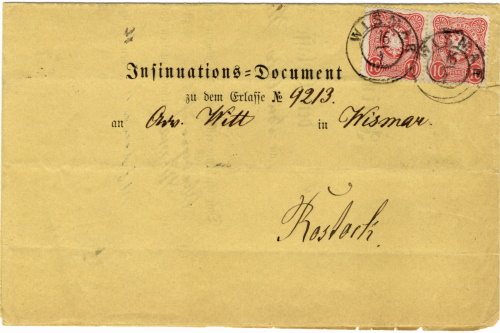 WISMAR
16
10
10
WISMAR
16
10
Insinuations=Document
zu dem Erlasse № 9213.
an Adv. Witt in Wismar.
Rostock.